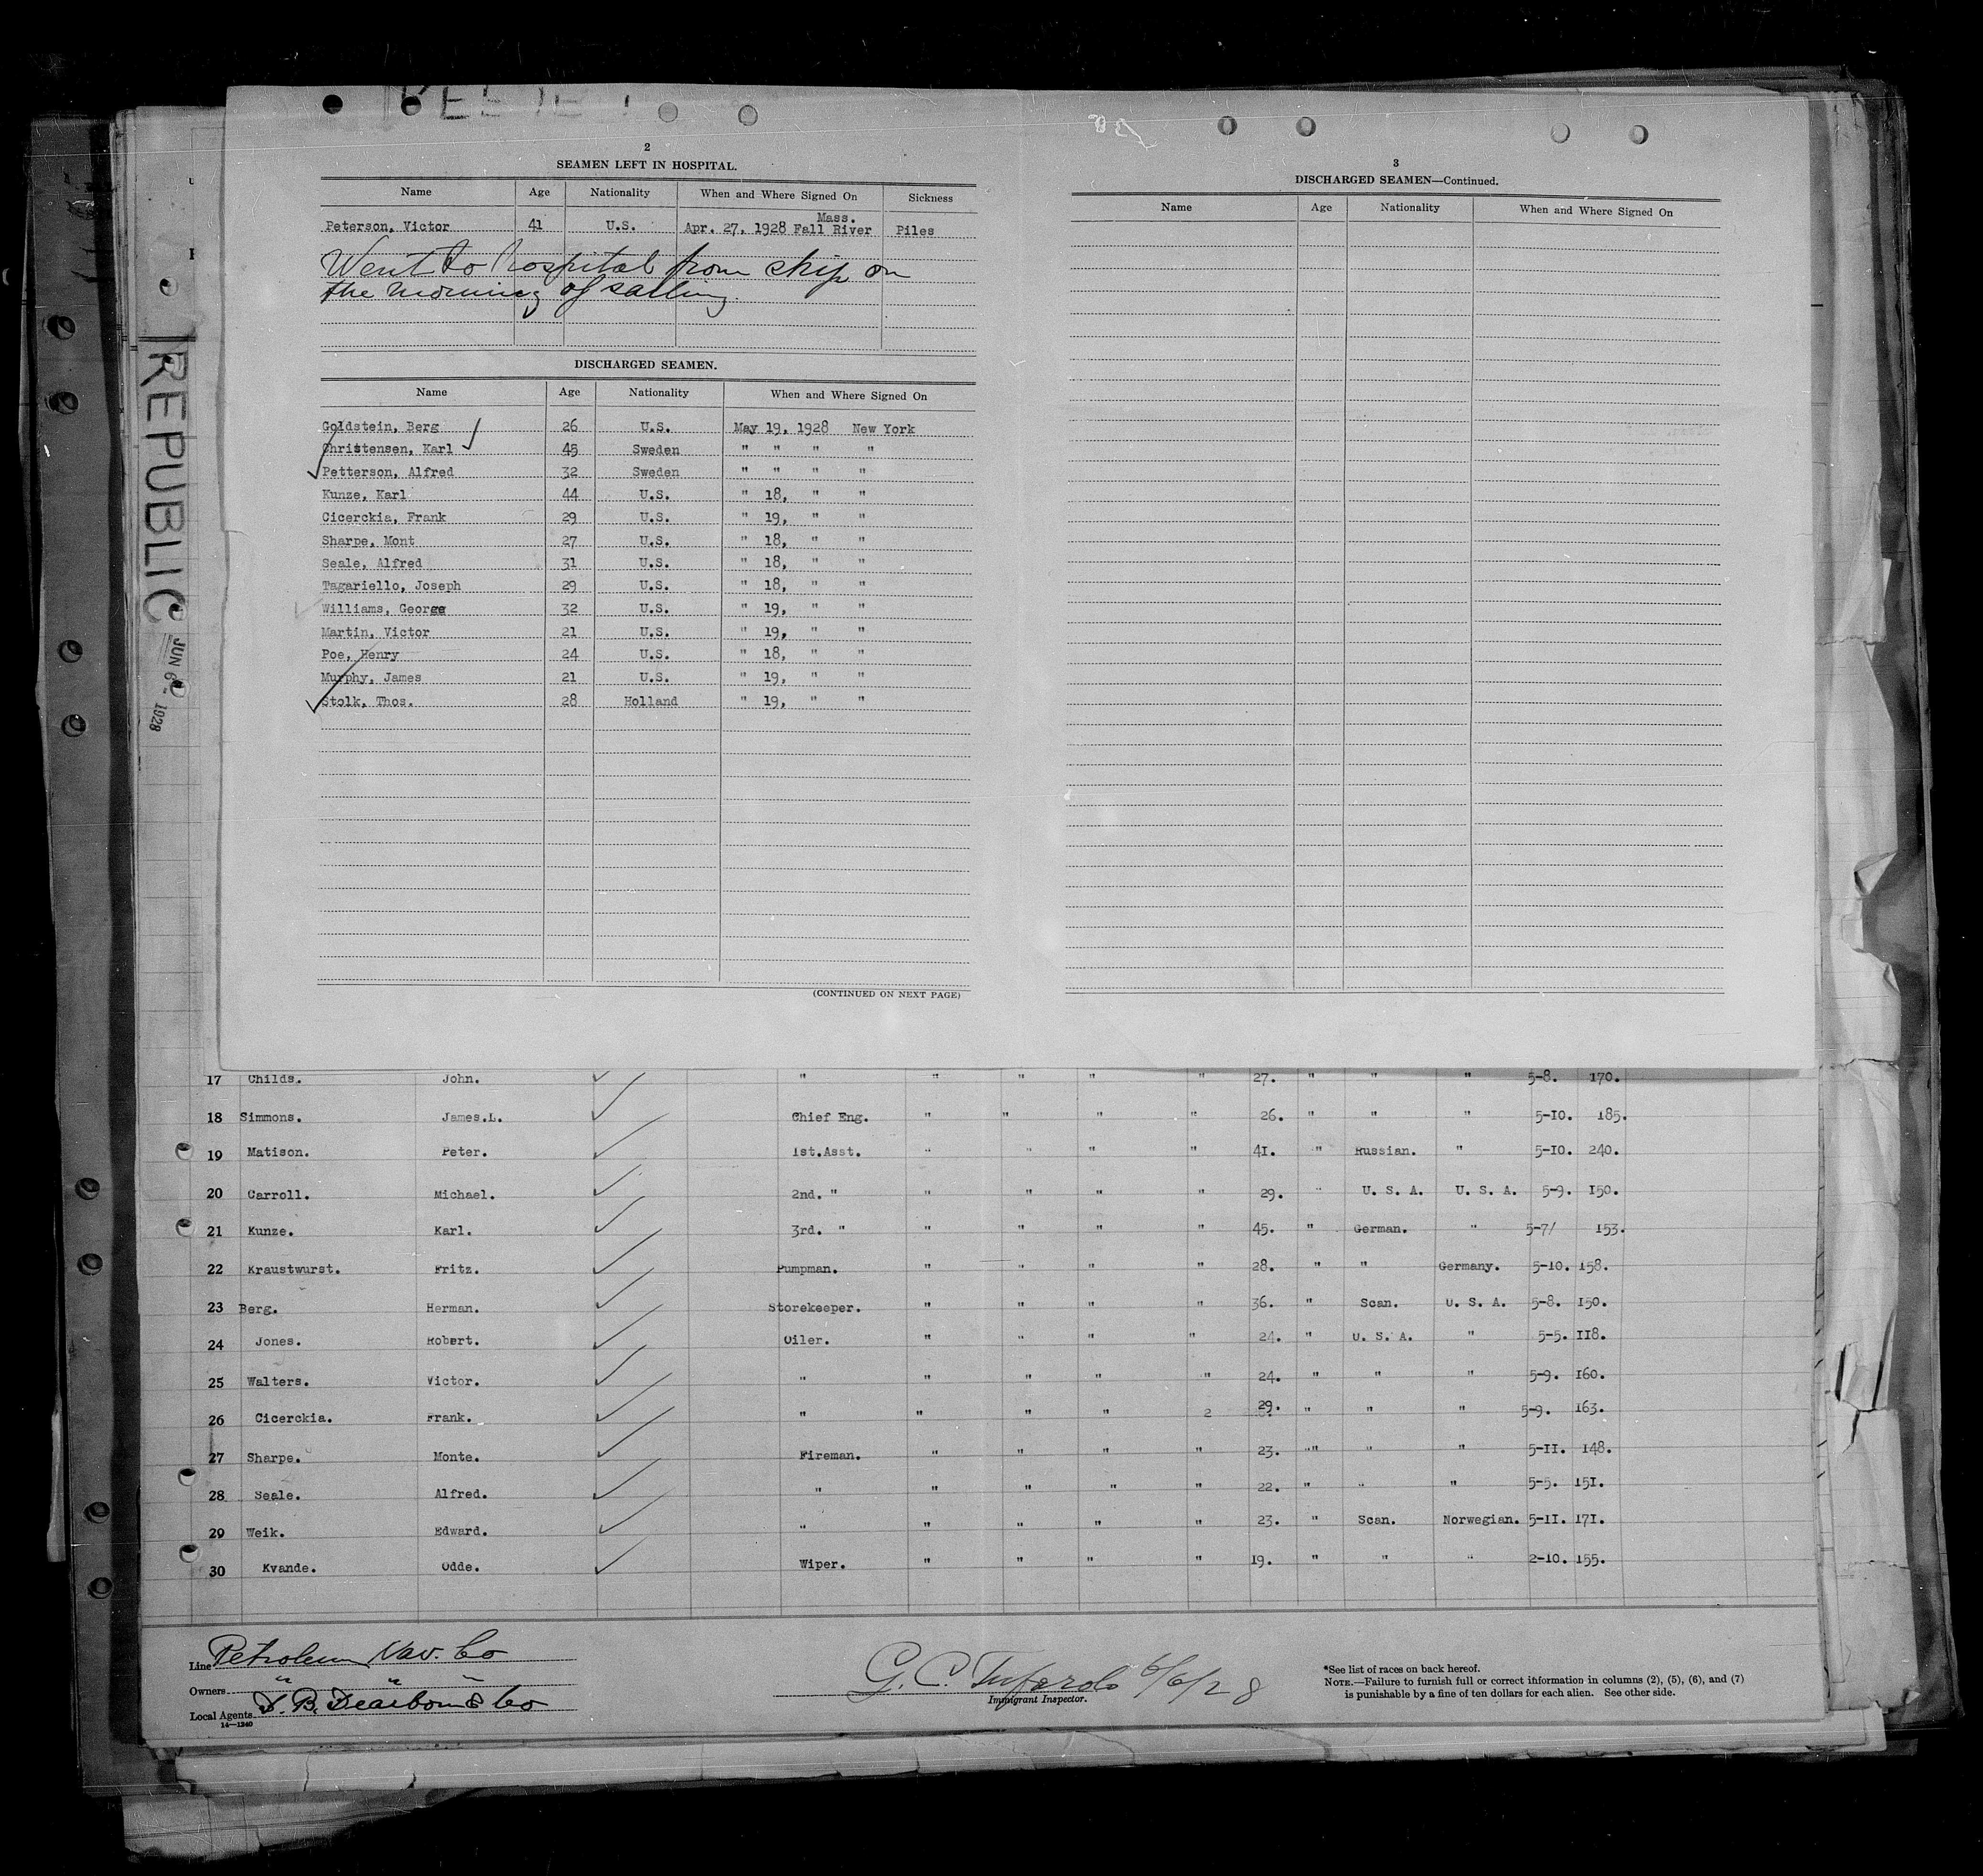 REPUBLIC
JUN 6 - 1928
2
SEAMEN LEFT IN HOSPITAL.
Name Age Nationality When and Where Signed On Sickness
Peterson, Victor 41 U.S. Apr. 27, 1928 Fall River Mass. Piles
Went to hospital from ship on
the morning of sailing.
DISCHARGED SEAMEN.
Name Age Nationality When and Where Signed On
Goldstein, Berg 26 U.S. May 19, 1928 New York
Christensen, Karl 45 Sweden " " " "
Petterson, Alfred 32 Sweden " " " "
Kunze, Karl 44 U.S. " 18, " "
Cicerckia, Frank 29 U.S. " 19, " "
Sharpe, Mont 27 U.S. " 18, " "
Seale, Alfred 31 U.S. " 18, " "
Tagariello, Joseph 29 U.S. " 18, " "
Williams, George 32 U.S. " 19, " "
Martin, Victor 21 U.S. " 19, " "
Poe, Henry 24 U.S. " 18, " "
Murphy, James 21 U.S. " 19, " "
Stolk, Thos. 28 Holland " 19, " "
(CONTINUED ON NEXT PAGE)
3
DISCHARGED SEAMEN—Continued.
Name Age Nationality When and Where Signed On
17 Childs. John. " " " " " 27. " " " 5-8. 170.
18 Simmons. James.L. Chief Eng. " " " " 26. " " " 5-10. 185.
19 Matison. Peter. 1st.Asst. " " " " 41. " Russian. " 5-10. 240.
20 Carroll. Michael. 2nd. " " " " " 29. " U. S. A. U. S. A. 5-9. 150.
21 Kunze. Karl. 3rd. " " " " " 45. " German. " 5-7/ 153.
22 Kraustwurst. Fritz. Pumpman. " " " " 28. " " Germany. 5-10. 158.
23 Berg. Herman. Storekeeper. " " " " 36. " Scan. U. S. A. 5-8. 150.
24 Jones. Robert. Oiler. " " " " 24. " U. S. A. " 5-5. 118.
25 Walters. Victor. " " " " " 24. " " " 5-9. 160.
26 Cicerckia. Frank. " " " " 2 29. " " " 5-9. 163.
27 Sharpe. Monte. Fireman. " " " " 23. "" " " 5-11. 148.
28 Seale. Alfred. " " " " " 22. " " " 5-5. 151.
29 Weik. Edward. " " " " " 23. " Scan. Norwegian. 5-11. 171.
30 Kvande. Odde. Wiper. " " " " 19. " " " 2-10. 155.
Line Petroleum Nav. Co
Owners " " "
Local Agents D. B. Dearborn & Co
14—1240
G. C. Tufarolo 6/6/28
Immigrant Inspector.
*See list of races on back hereof.
NOTE.—Failure to furnish full or correct information in columns (2), (5), (6), and (7)
is punishable by a fine of ten dollars for each alien. See other side.